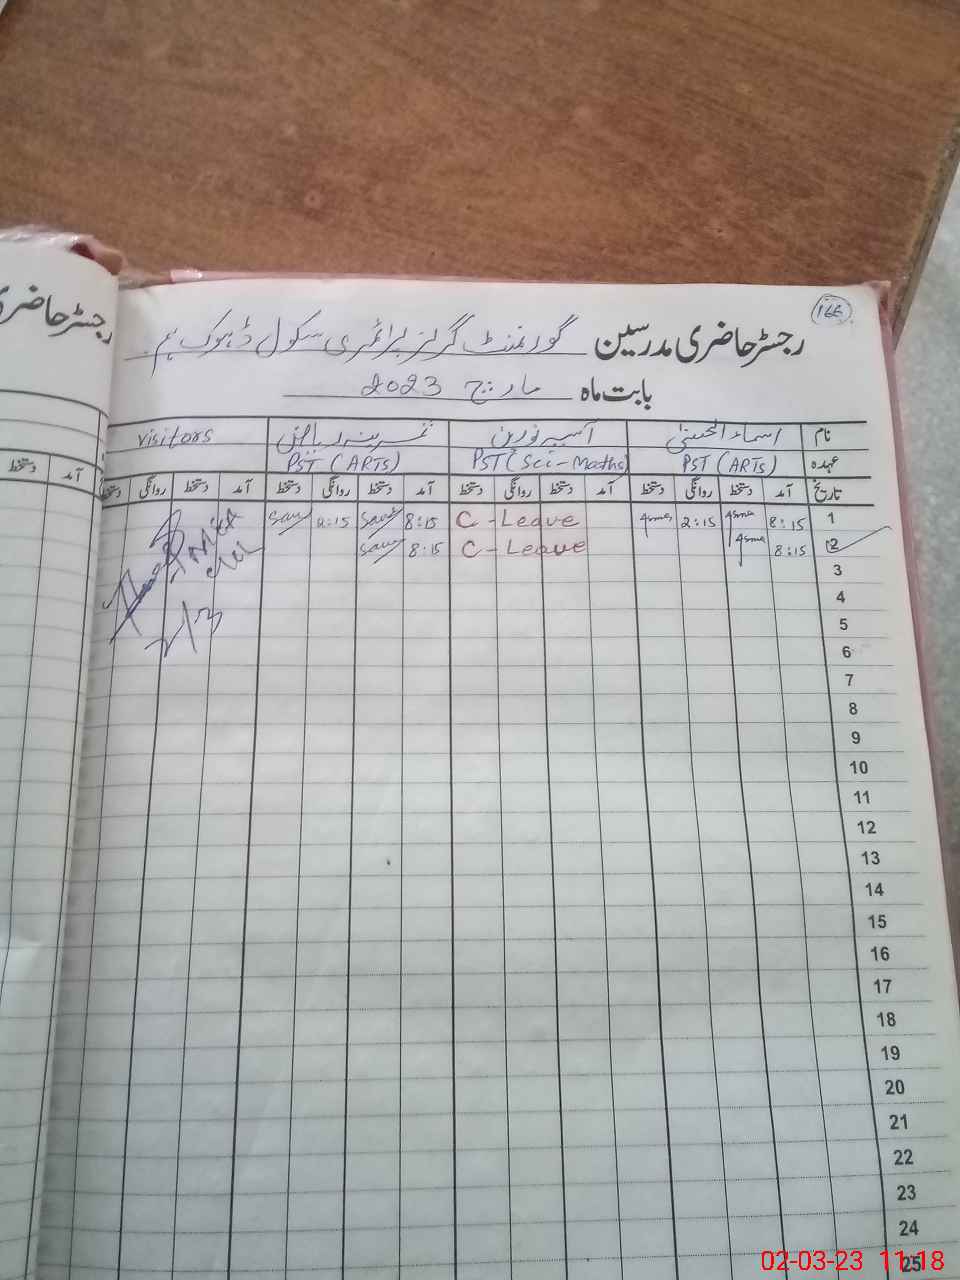 166
رجسٹر حاضری مدرسین گورنمنٹ گرلز پرائمری سکول ڈہوک ہم
بابت ماہ مارچ 2023
نام اسماء الحسنیٰ آسیہ نورین ثمرینہ ریاض visitors
عہدہ PST (ARTs) PST (Sci-Maths) PST (ARTs)
تاریخ آمد دستخط روانگی دستخط آمد دستخط روانگی دستخط آمد دستخط روانگی دستخط آمد دستخط روانگی دستخط
1 8:15 Asma 2:15 Asma C-Leave 8:15 2:15
2 8:15 Asma C-Leave 8:15
2/3
3
4
5
6
7
8
9
10
11
12
13
14
15
16
17
18
19
20
21
22
23
24
25
رجسٹر حاضری
آمد دستخط
02-03-23 11:18